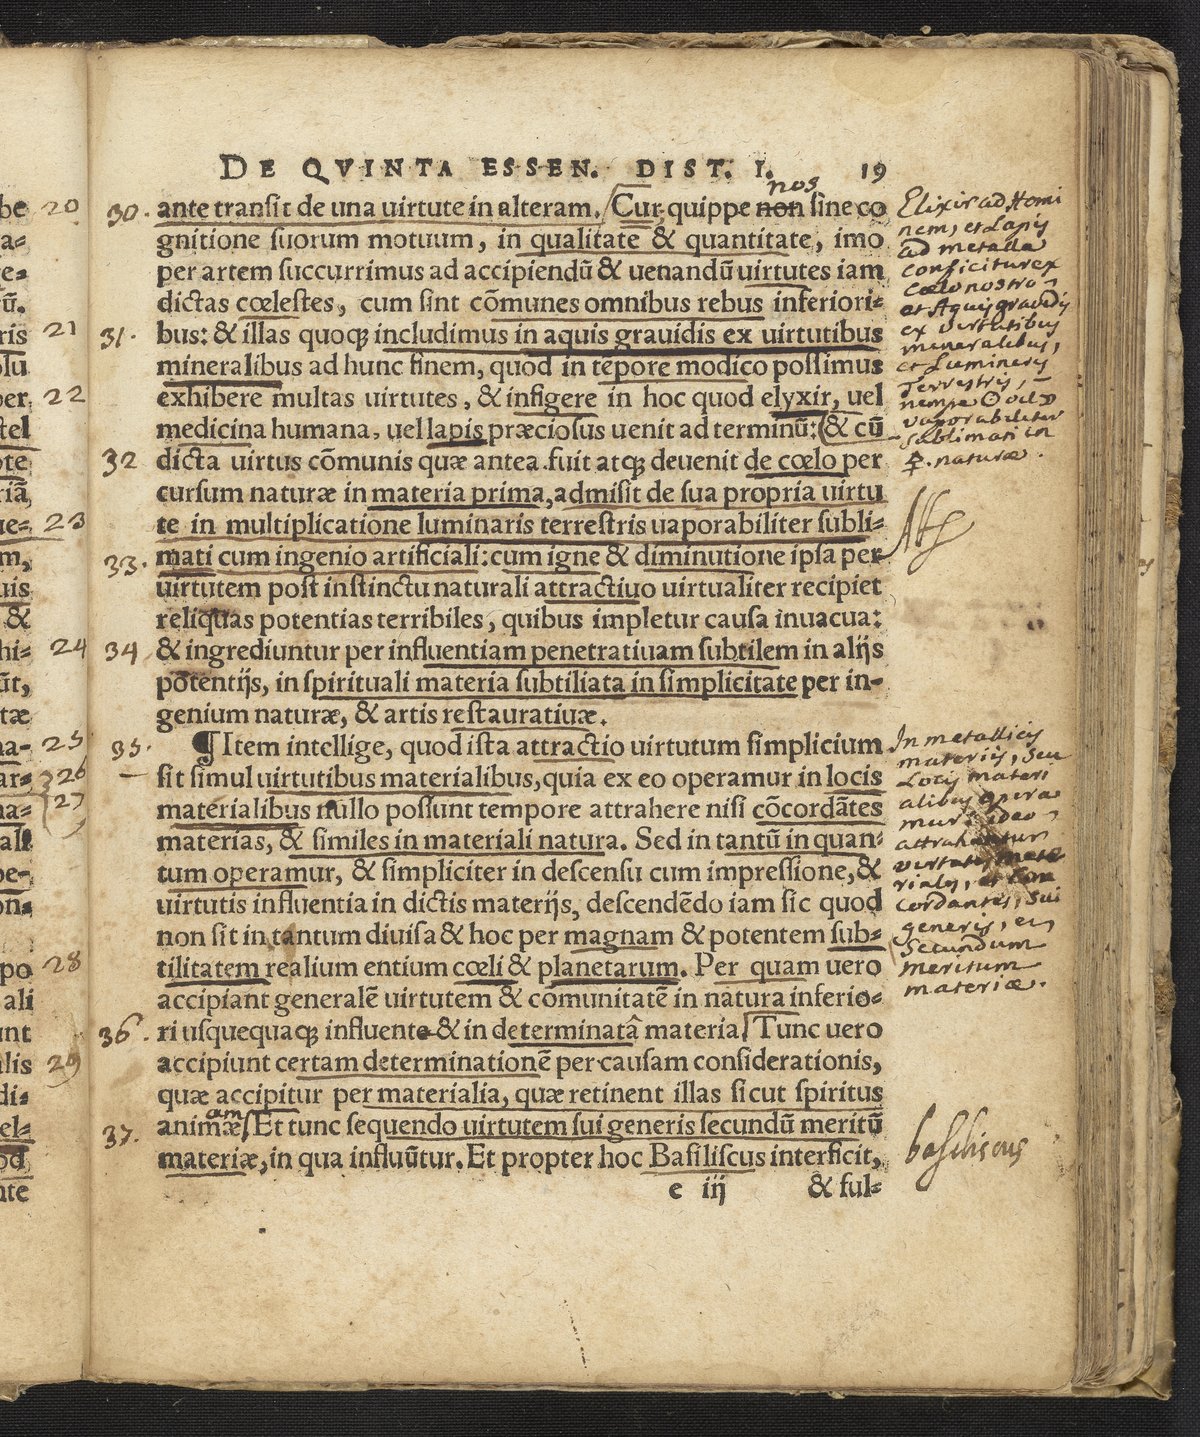 DE QVINTA ESSEN. DIST. I. 19
nos
30. ante transit de una uirtute in alteram. Cur, quippe non sine co
gnitione suorum motuum, in qualitate & quantitate, imo
per artem succurrimus ad accipiendũ & uenandũ uirtutes iam
dictas cœlestes, cum sint cõmunes omnibus rebus inferiori-
31. bus: & illas quoq; includimus in aquis grauidis ex uirtutibus
mineralibus ad hunc finem, quod in tẽpore modico possimus
exhibere multas uirtutes, & infigere in hoc quod elyxir, uel
medicina humana, uel lapis præciosus uenit ad terminũ: & cũ
32 dicta uirtus cõmunis quæ antea fuit atq; deuenit de cœlo per
cursum naturæ in materia prima, admisit de sua propria uirtu
te in multiplicatione luminaris terrestris uaporabiliter subli-
33. mati cum ingenio artificiali: cum igne & diminutione ipsa per
uirtutem post instinctu naturali attractiuo uirtualiter recipiet
reliquas potentias terribiles, quibus impletur causa inuacua:
34 & ingrediuntur per influentiam penetratiuam subtilem in alijs
potentijs, in spirituali materia subtiliata in simplicitate per in-
genium naturæ, & artis restauratiuæ.
35. ¶ Item intellige, quod ista attractio uirtutum simplicium
sit simul uirtutibus materialibus, quia ex eo operamur in locis
materialibus nullo possunt tempore attrahere nisi cõcordãtes
materias, & similes in materiali natura. Sed in tantũ in quan-
tum operamur, & simpliciter in descensu cum impressione, &
uirtutis influentia in dictis materijs, descendẽdo iam sic quod
non sit in tantum diuisa & hoc per magnam & potentem sub-
tilitatem realium entium cœli & planetarum. Per quam uero
accipiant generalẽ uirtutem & comunitatẽ in natura inferio-
36. ri usquequaq; influente & in determinatâ materia. Tunc uero
accipiunt certam determinationẽ per causam considerationis,
quæ accipitur per materialia, quæ retinent illas sicut spiritus
am
37. animæ. Et tunc sequendo uirtutem sui generis secundũ meritũ
materiæ, in qua influũtur. Et propter hoc Basiliscus interficit,
e iij & ful-
Elixir ad Homi
nem, et Lapis
ad metalla
conficitur ex
cœlo nostro
et Aquis gravidis
ex virtutibus
mineralibus,
et Luminaris
Terrestris,
nempe ☉ vel ☽
vaporabiliter
sublimati in
☿. naturæ.
In metallicis
materiis, seu
Locis materi
alibus opera
mur: ideo
attrahuntur
virtutes mate
riales, et con
cordantes, sui
generis, et
secundum
meritum
materiæ.
basiliscus
be 20
a-
e-
ũ.
ris 21
olu
per 22
tel
ote
riã
ue- 23
m,
uis
&
hi- 24
ũt,
tæ
na- 25
ar- 26
na- 27
ali
pe-
on-
po 28
ali
unt
alis 29
di-
el-
od
nte